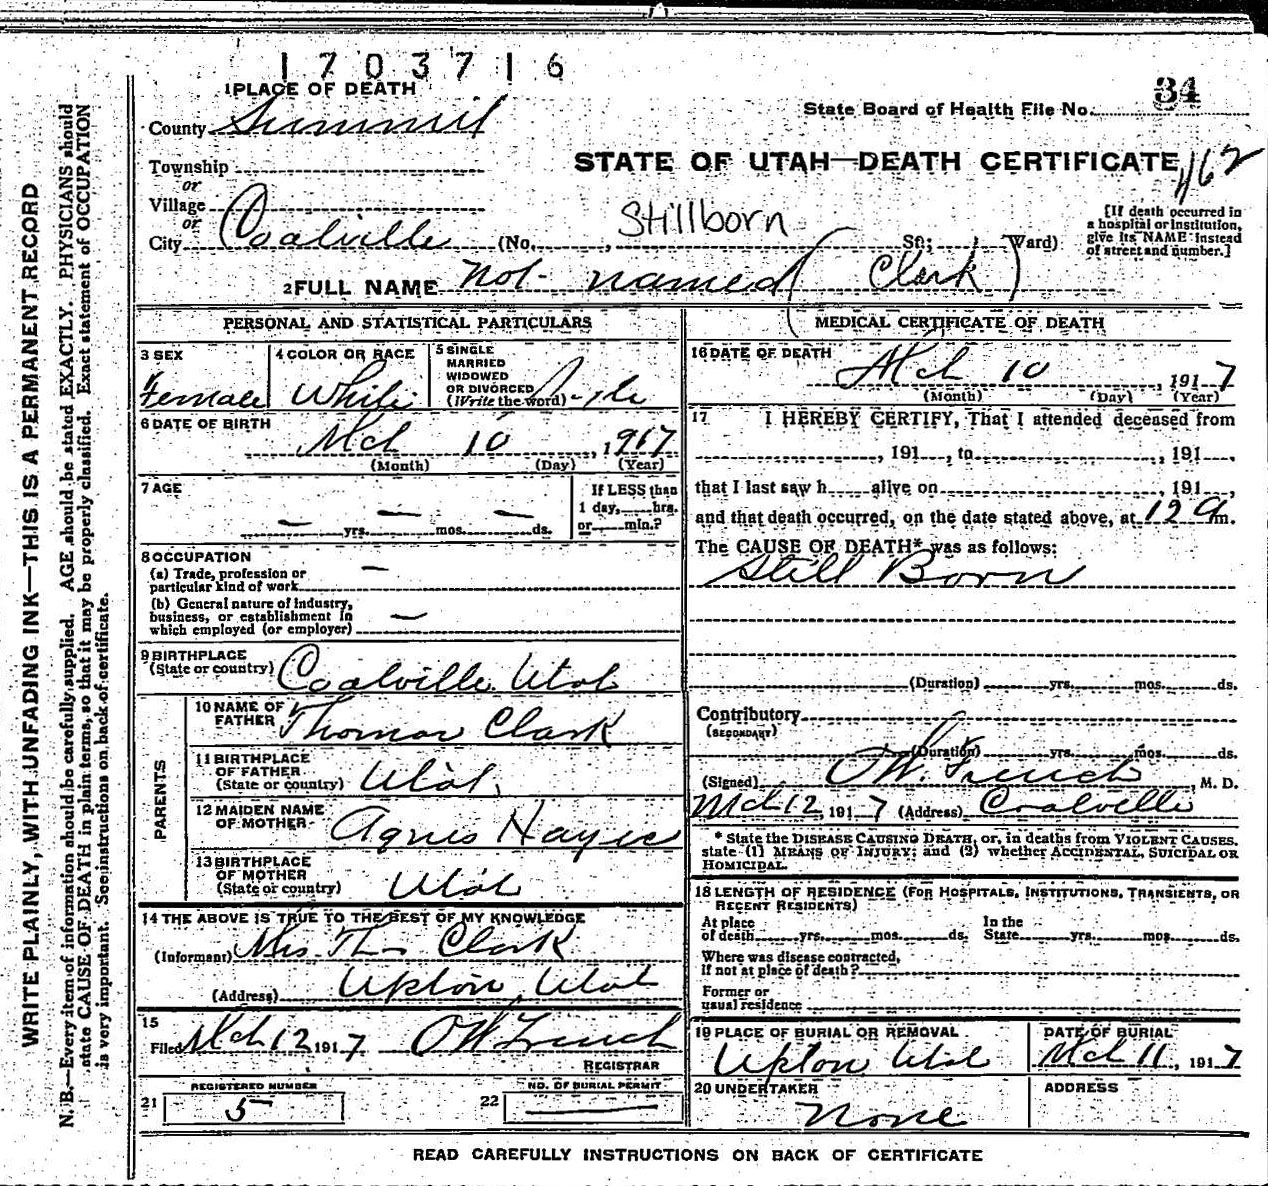 1703716
34
1 PLACE OF DEATH
State Board of Health File No.
County Summit
STATE OF UTAH—DEATH CERTIFICATE
Township
or
Village
or
City Coalville (No. , Stillborn St.; Ward)
[If death occurred in
a hospital or institution,
give its NAME instead
of street and number.]
2 FULL NAME Not named (Clark)
PERSONAL AND STATISTICAL PARTICULARS
3 SEX
Female
4 COLOR OR RACE
White
5 SINGLE
MARRIED
WIDOWED
OR DIVORCED
(Write the word)
6 DATE OF BIRTH
Mch 10, 1917
(Month) (Day) (Year)
7 AGE
— yrs. — mos. — ds.
If LESS than
1 day, hrs.
or min.?
8 OCCUPATION
(a) Trade, profession or
particular kind of work —
(b) General nature of industry,
business, or establishment in
which employed (or employer) —
9 BIRTHPLACE
(State or country) Coalville Utah
PARENTS
10 NAME OF
FATHER Thomas Clark
11 BIRTHPLACE
OF FATHER
(State or country) Utah
12 MAIDEN NAME
OF MOTHER Agnes
13 BIRTHPLACE
OF MOTHER
(State or country) Utah
14 THE ABOVE IS TRUE TO THE BEST OF MY KNOWLEDGE
(Informant) Mrs. Clark
(Address) Upton, Utah
15
Filed Mch 12 1917 O W French
REGISTRAR
REGISTERED NUMBER
21 5
NO. OF BURIAL PERMIT
22 —
MEDICAL CERTIFICATE OF DEATH
16 DATE OF DEATH
Mch 10, 1917
(Month) (Day) (Year)
17 I HEREBY CERTIFY, That I attended deceased from
, 191 , to , 191 ,
that I last saw h alive on , 191 ,
and that death occurred, on the date stated above, at 12 a m.
The CAUSE OF DEATH* was as follows:
Still Born
(Duration) yrs. mos. ds.
Contributory
(SECONDARY)
(Duration) yrs. mos. ds.
(Signed) O W. French, M. D.
Mch 12, 1917 (Address) Coalville
* State the DISEASE CAUSING DEATH, or, in deaths from VIOLENT CAUSES,
state (1) MEANS OF INJURY; and (2) whether ACCIDENTAL, SUICIDAL OR
HOMICIDAL.
18 LENGTH OF RESIDENCE (FOR HOSPITALS, INSTITUTIONS, TRANSIENTS, OR
RECENT RESIDENTS)
At place
of death yrs. mos. ds.
In the
State yrs. mos. ds.
Where was disease contracted,
if not at place of death?
Former or
usual residence
19 PLACE OF BURIAL OR REMOVAL
Upton Utah
DATE OF BURIAL
Mch 11, 1917
20 UNDERTAKER
None
ADDRESS
READ CAREFULLY INSTRUCTIONS ON BACK OF CERTIFICATE
WRITE PLAINLY, WITH UNFADING INK—THIS IS A PERMANENT RECORD
N. B.—Every item of information should be carefully supplied. AGE should be stated EXACTLY. PHYSICIANS should
state CAUSE OF DEATH in plain terms, so that it may be properly classified. Exact statement of OCCUPATION
is very important. See instructions on back of certificate.